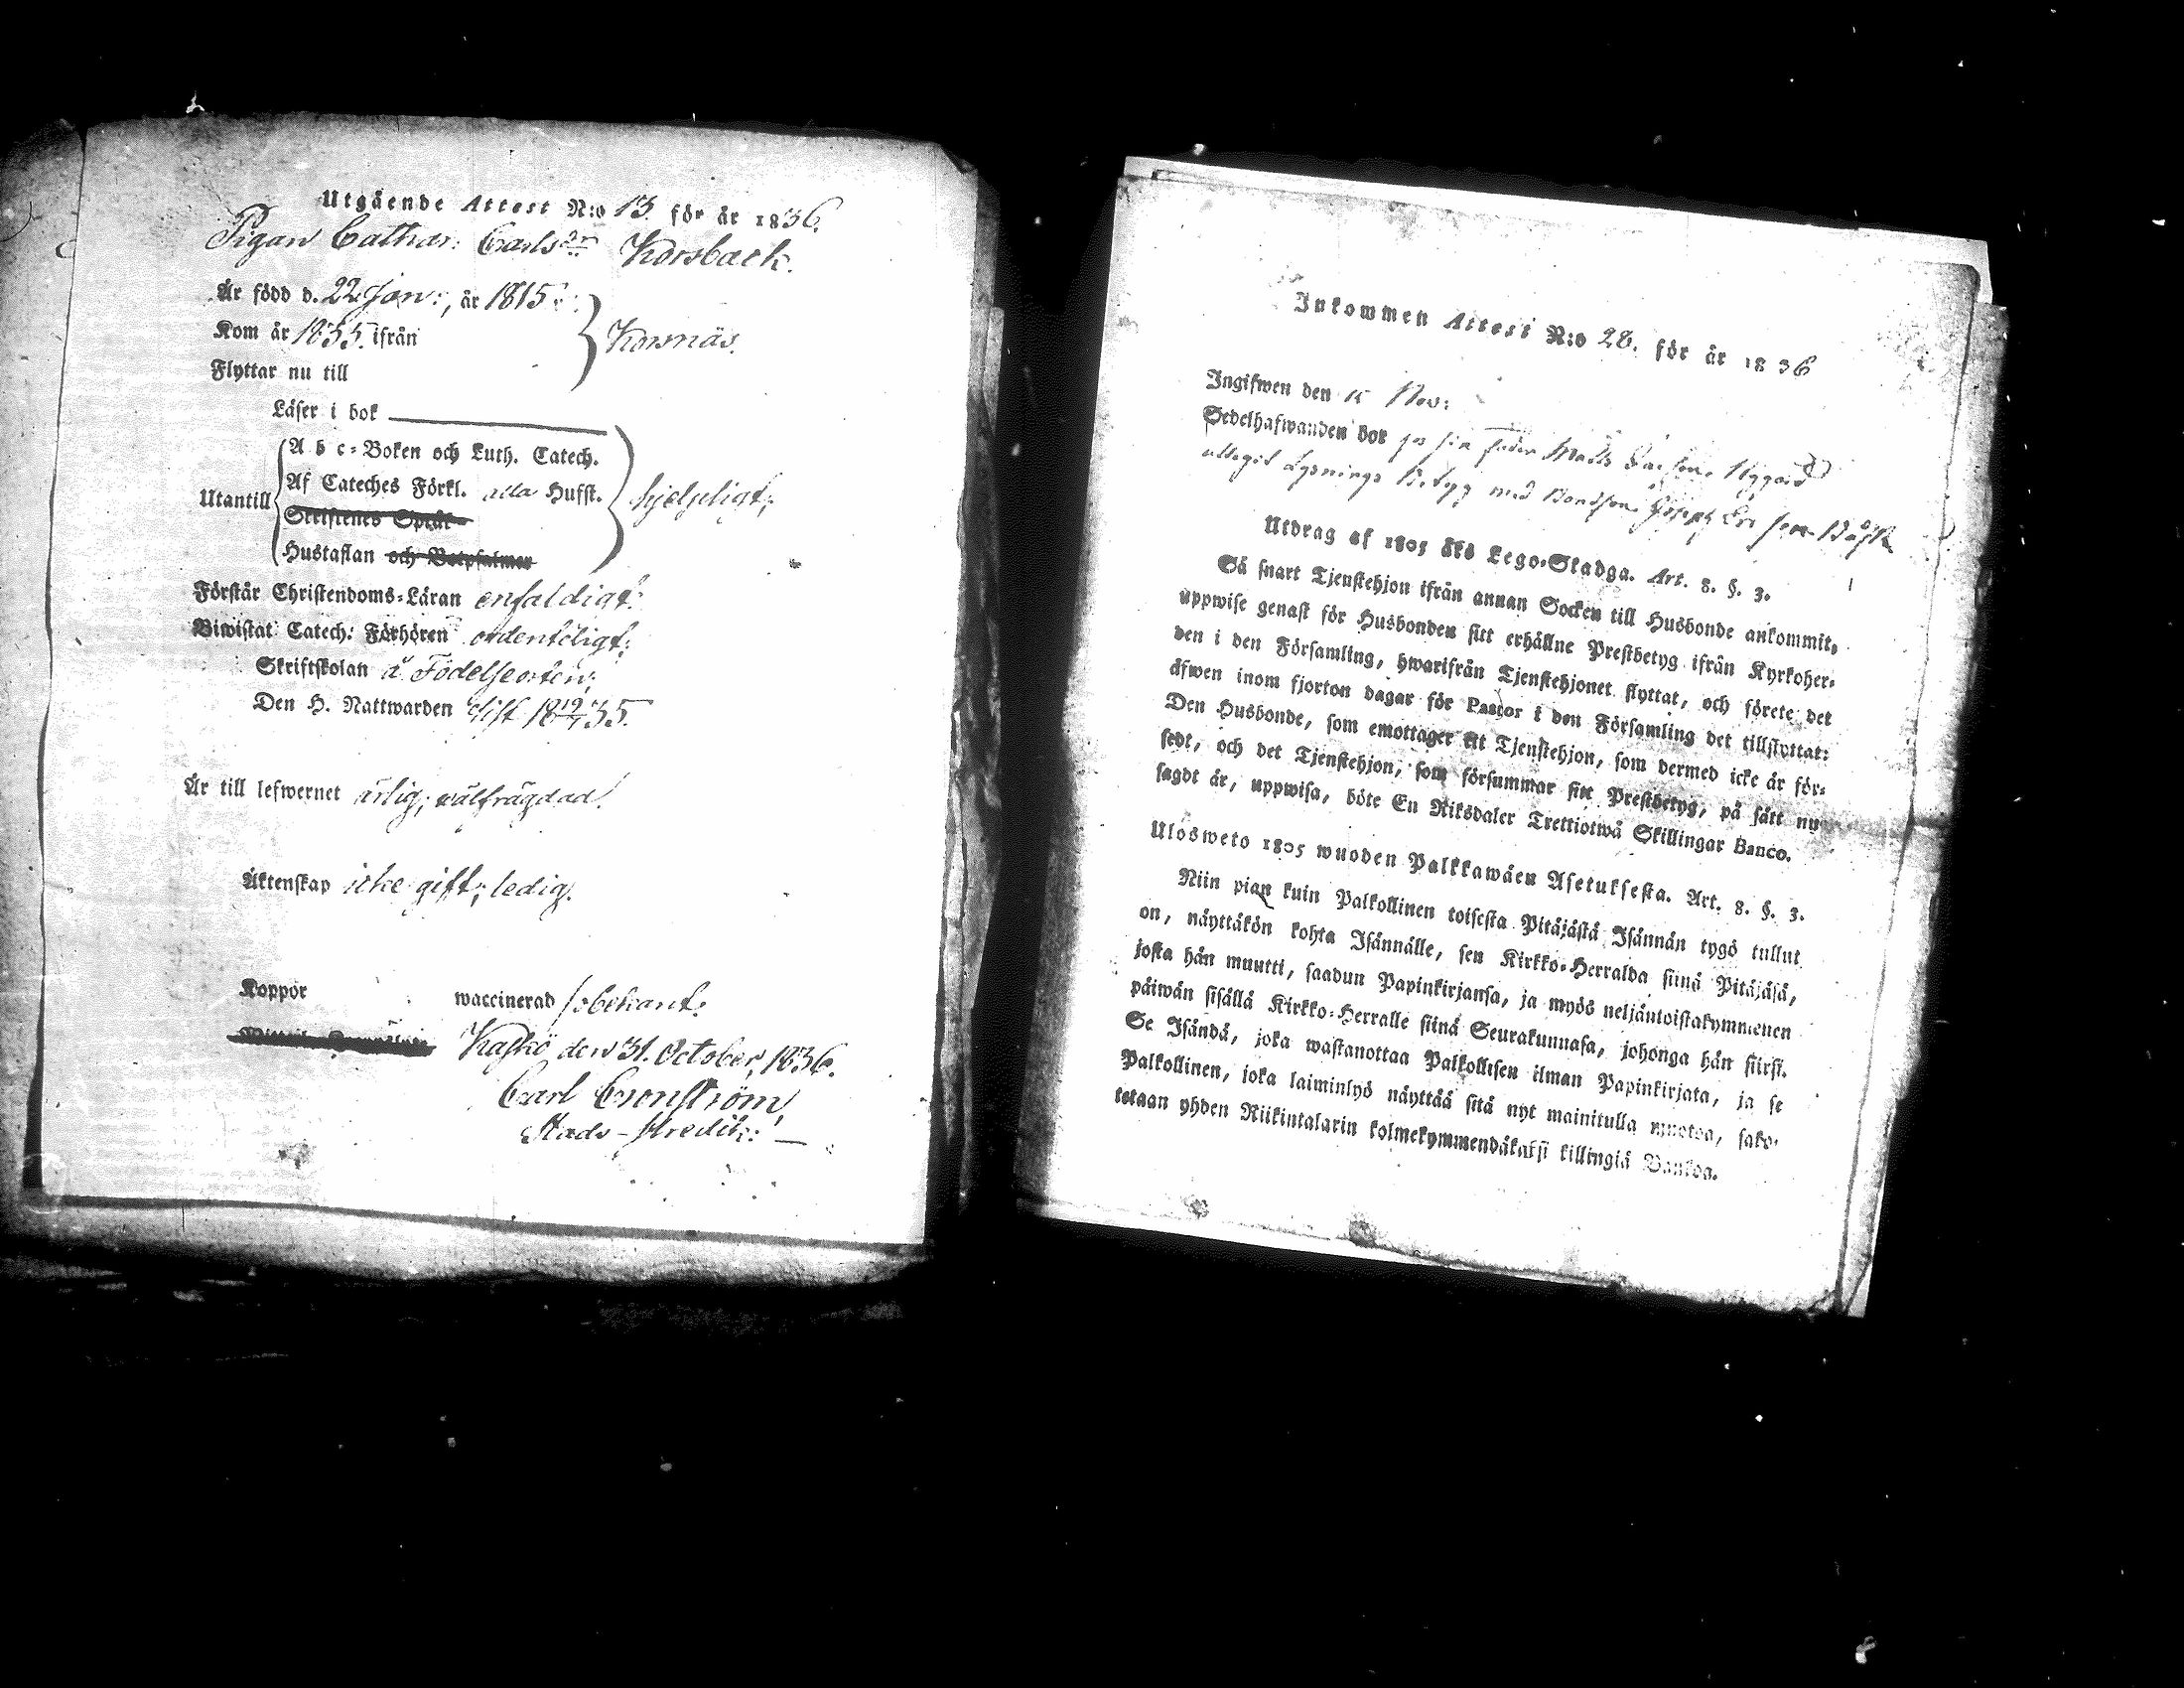 Utgående Attest N:o 13. för år 1836.
Pigan Cathar: Carlsdr Korsback.
Är född d. 22 Jan:, år 1815.
Kom år 1835. ifrån
Korsnäs.
Flyttar nu till
Läser i bok
A b c-Boken och Luth. Catech.
Af Cateches Förkl. alla Hufst.
Utantill
hjelpligt;
Skriftenes Språk
Hustaflan och Botpsalmer
Förstår Christendoms-Läran enfaldigt:
Biwistat Catech: Förhören ordentligt;
Skriftskolan å Födelseorten;
Den H. Nattwarden sist 18 19/7 35.
Är till lefwernet ärlig; wälfrägdad.
Äktenskap icke gift; ledig.
Koppor waccinerad obekant.
Kaskö den 31. October, 1836.
Carl Cronström
Stads-Predik:
Inkommen Attest N:o 28. för år 1836
Ingifwen den 15 Nov:
Sedelhafwanden bor
med
Utdrag af 1805 års Lego-Stadga. Art. 8. §. 3.
Så snart Tjenstehjon ifrån annan Socken till Husbonde ankommit,
uppwise genast för Husbonden sitt erhållne Prestbetyg ifrån Kyrkoher-
den i den Församling, hwarifrån Tjenstehjonet flyttat, och förete det
äfwen inom fjorton dagar för Pastor i den Församling det tillflyttat:
Den Husbonde, som emottager ett Tjenstehjon, som dermed icke är för-
sedt, och det Tjenstehjon, som försummar sitt Prestbetyg, på sätt nu
sagdt är, uppwisa, böte En Riksdaler Trettiotwå Skillingar Banco.
Ulosweto 1805 wuoden Palkkawäen Asetuksesta. Art. 8. §. 3.
Niin pian kuin Palkollinen toisesta Pitäjästä Isännän tygö tullut
on, näyttäkön kohta Isännälle, sen Kirkko-Herralda siinä Pitäjäsä,
josta hän muutti, saadun Papinkirjansa, ja myös neljäntoistakymmenen
päiwän sisällä Kirkko-Herralle siinä Seurakunnasa, johonga hän siirsi.
Se Isändä, joka wastanottaa Palkollisen ilman Papinkirjata, ja se
Palkollinen, joka laiminlyö näyttää sitä nyt mainitulla muotoa, sako-
tetaan yhden Riikintalarin kolmekymmendäkaksi killingiä Bankos.